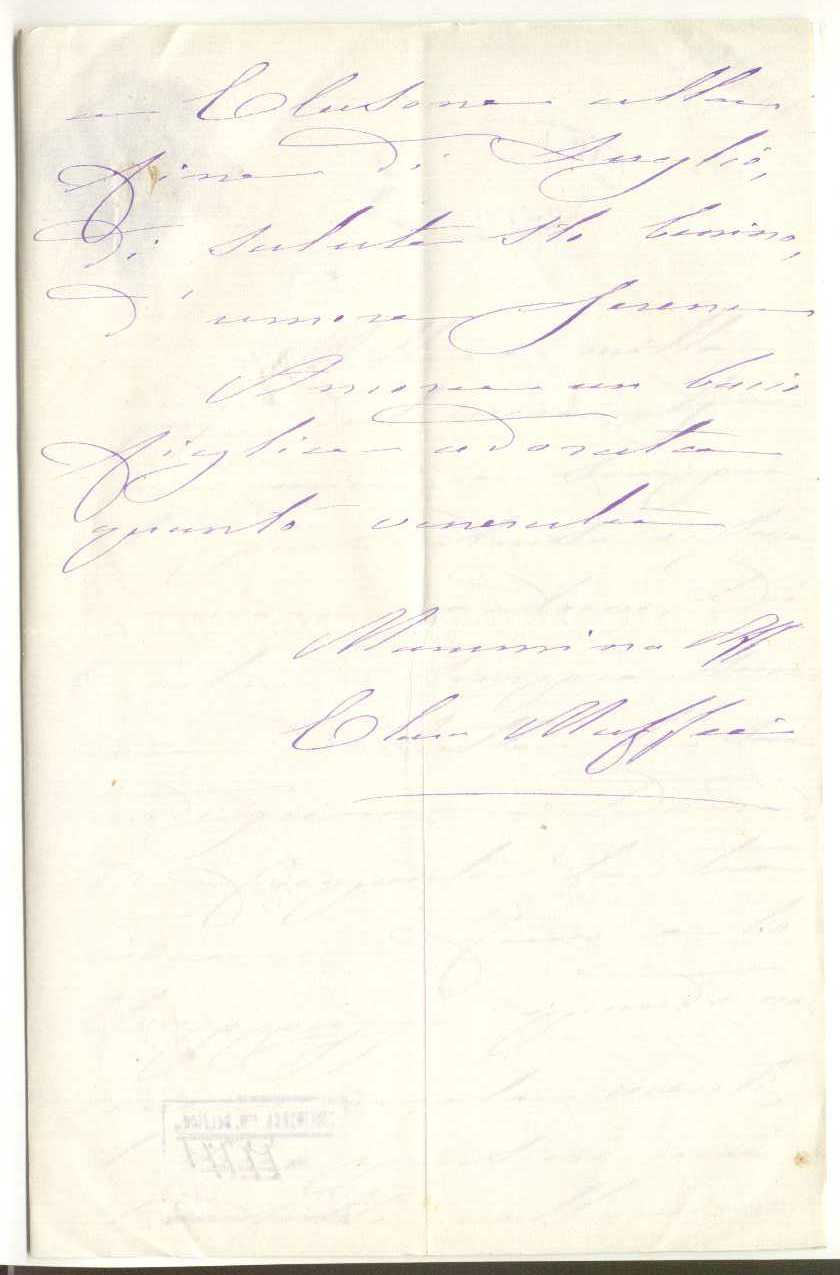 a Clusone alla
fine di Luglio,
Di salute sto benino,
d'umore serena
Amore un bacio
figlia adorata
quanto venerata
Mammina Aff
Clara Maffei